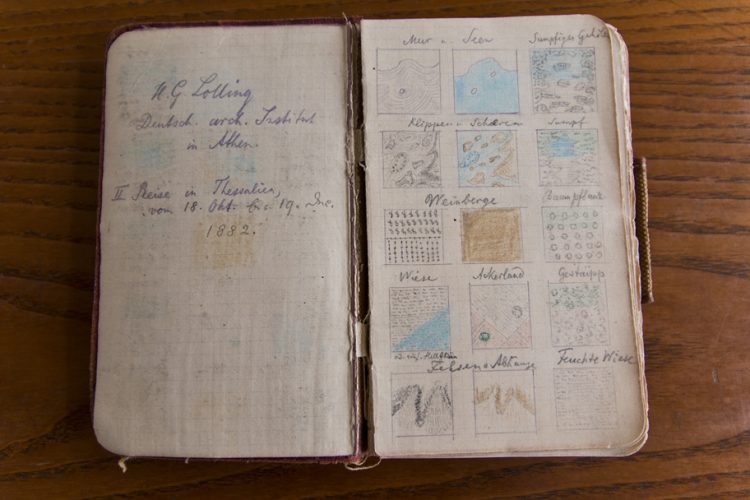 H. G. Lolling
Deutsch. arch. Institut
in Athen.
II Reise in Thessalien,
vom 18. Okt. bis 19. Dec.
1882.
Meer u. Seen
Sumpfiges Gehölz
Klippen u. Schären
Sumpf
Weinberge
Baumpflanz
Wiese
Ackerland
Gestrüpp
od. einf. Hellgrün
Felsen u. Abhänge
Feuchte Wiese